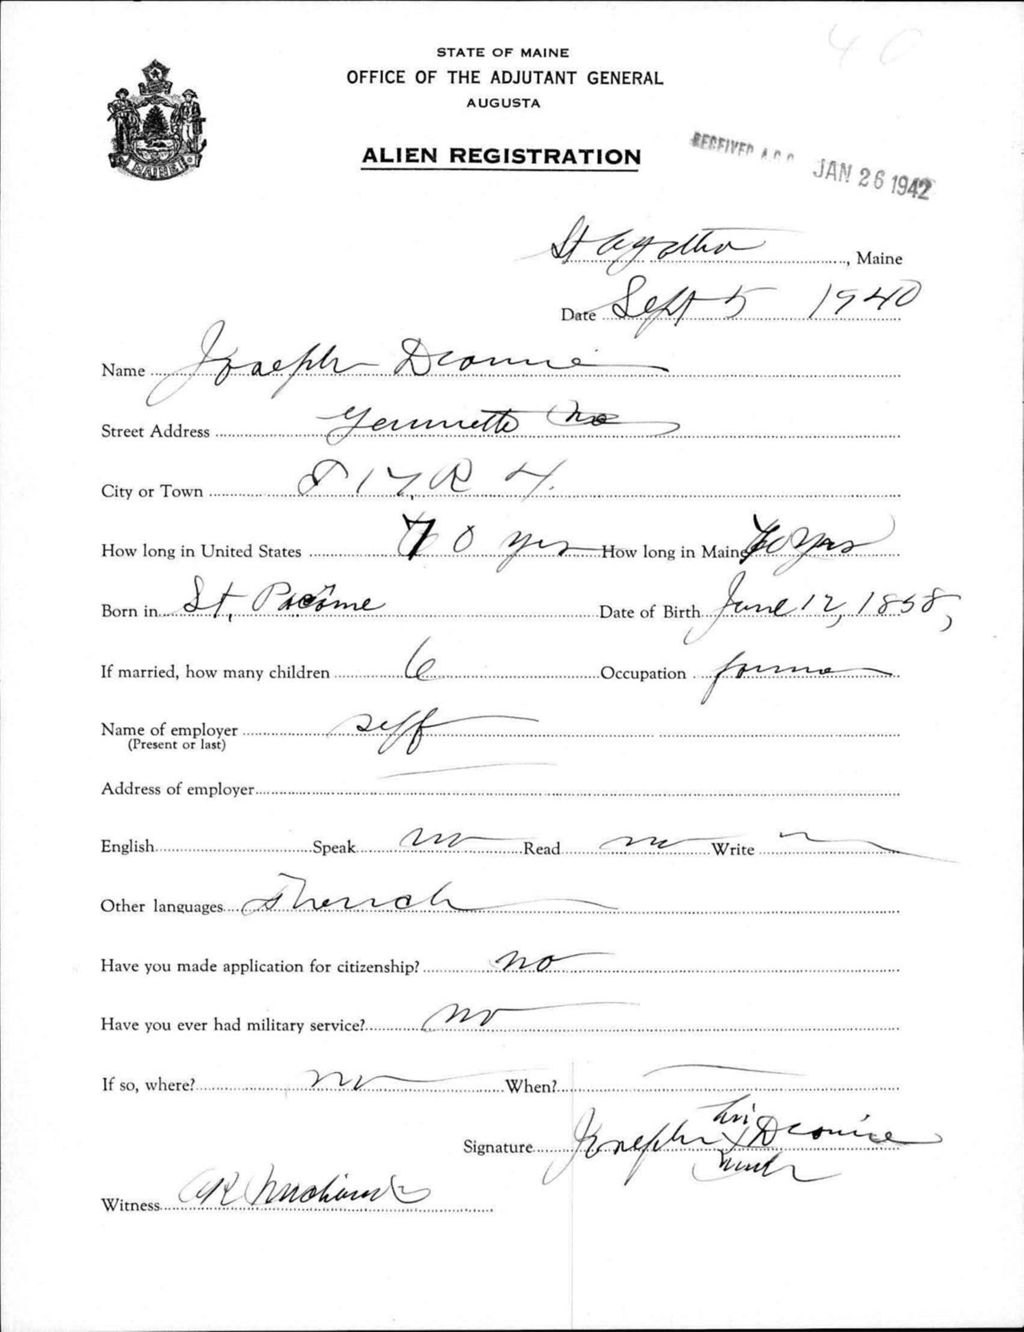 STATE OF MAINE
OFFICE OF THE ADJUTANT GENERAL
AUGUSTA
ALIEN REGISTRATION
RECEIVED A.G.O. JAN 26 1942
MAINE
40
St Agatha, Maine
Date Sept 5 1940
Name Joseph Dionne
Street Address
City or Town T 17, R 4.
How long in United States 70 yrs How long in Maine yrs
Born in St. Pacôme Date of Birth June 12, 1858,
If married, how many children 6 Occupation farmer
Name of employer self
(Present or last)
Address of employer
English Speak no Read no Write
Other languages French
Have you made application for citizenship? no
Have you ever had military service? no
If so, where? no When?
Signature Joseph his X Dionne
mark
Witness